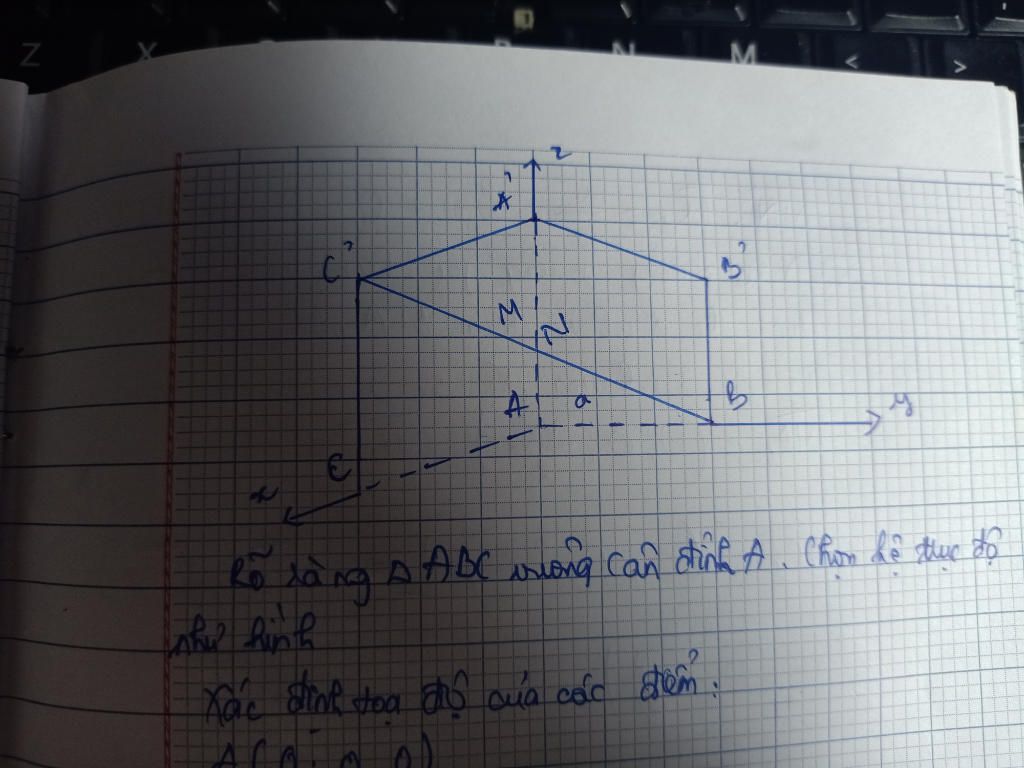 Z X N M < >
z
A'
C' B'
M N
A a B y
C
x
Rõ ràng Δ ABC vuông cân đỉnh A. Chọn hệ trục độ
như hình
Xác định tọa độ của các điểm:
A(0; 0, 0)